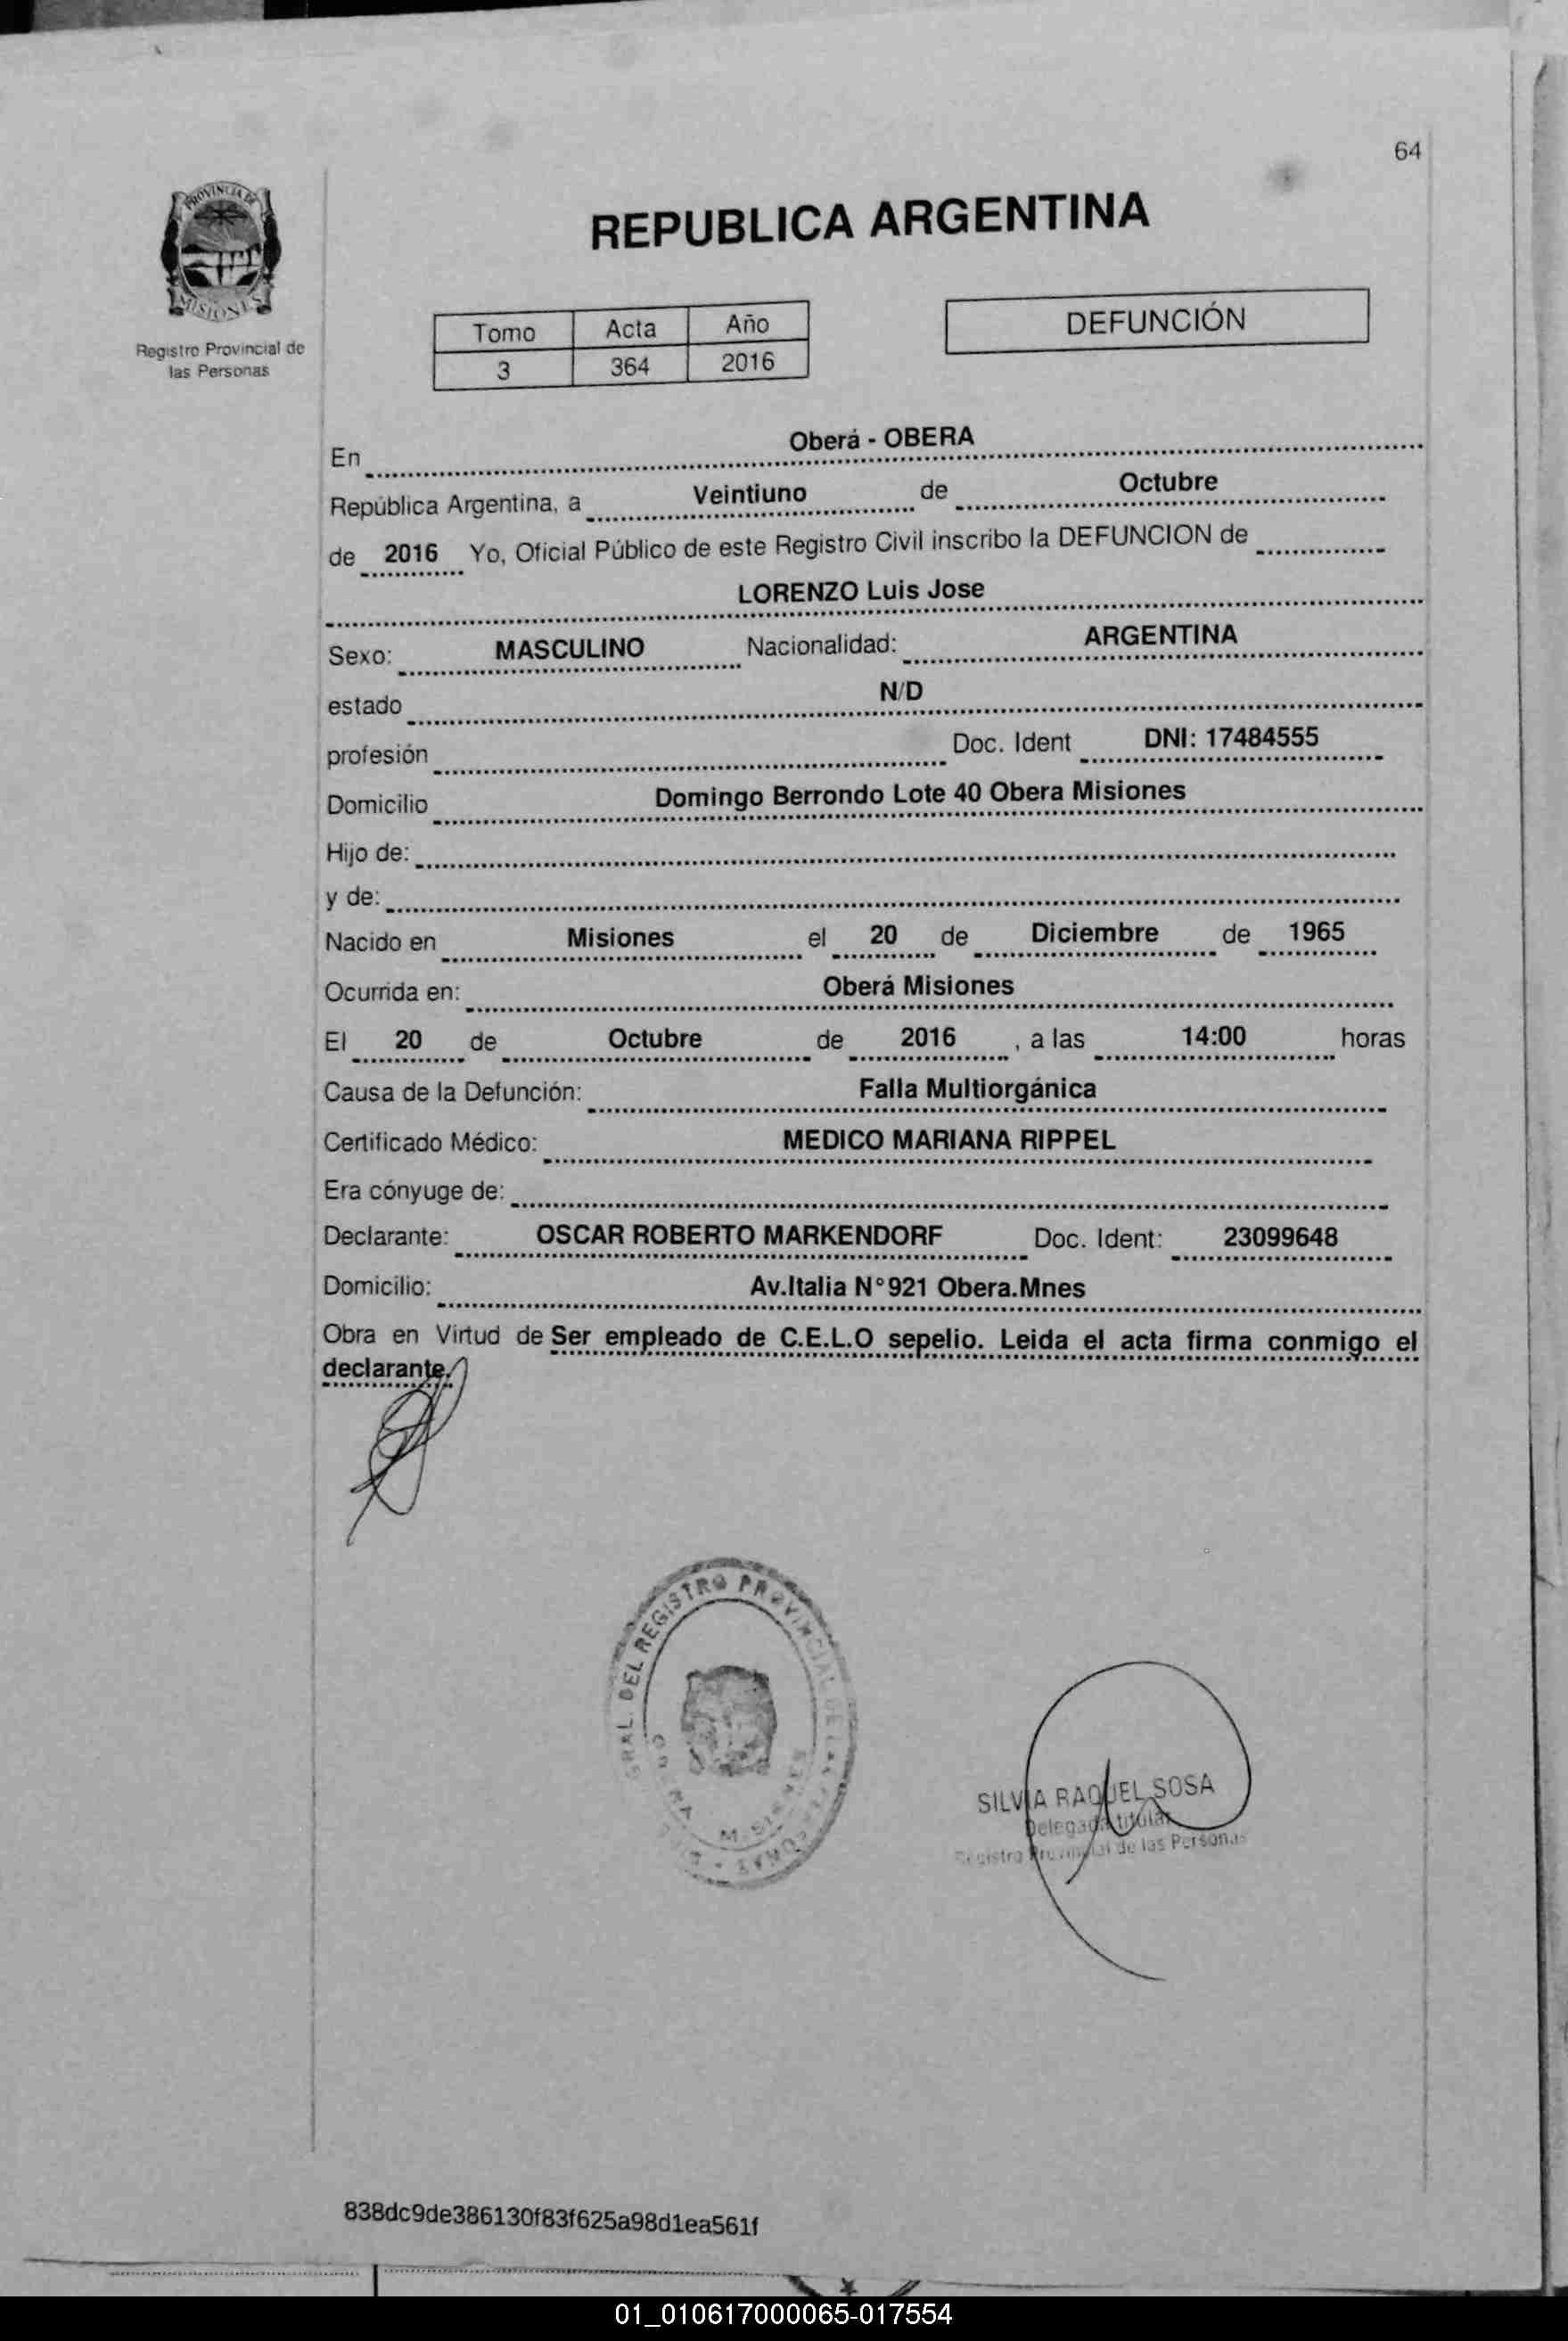 64
PROVINCIA DE
MISIONES
Registro Provincial de
las Personas
REPUBLICA ARGENTINA
Tomo Acta Año
3 364 2016
DEFUNCIÓN
En Oberá - OBERA
República Argentina, a Veintiuno de Octubre
de 2016 Yo, Oficial Público de este Registro Civil inscribo la DEFUNCION de
LORENZO Luis Jose
Sexo: MASCULINO Nacionalidad: ARGENTINA
estado N/D
profesión Doc. Ident DNI: 17484555
Domicilio Domingo Berrondo Lote 40 Obera Misiones
Hijo de:
y de:
Nacido en Misiones el 20 de Diciembre de 1965
Ocurrida en: Oberá Misiones
El 20 de Octubre de 2016 , a las 14:00 horas
Causa de la Defunción: Falla Multiorgánica
Certificado Médico: MEDICO MARIANA RIPPEL
Era cónyuge de:
Declarante: OSCAR ROBERTO MARKENDORF Doc. Ident: 23099648
Domicilio: Av.Italia N°921 Obera.Mnes
Obra en Virtud de Ser empleado de C.E.L.O sepelio. Leida el acta firma conmigo el
declarante.
GRAL. DEL REGISTRO PROVINCIAL DE LAS PERSONAS
OBERA MISIONES
SILVIA RAQUEL SOSA
Delegada titular
Registro Provincial de las Personas
838dc9de386130f83f625a98d1ea561f
01_010617000065-017554